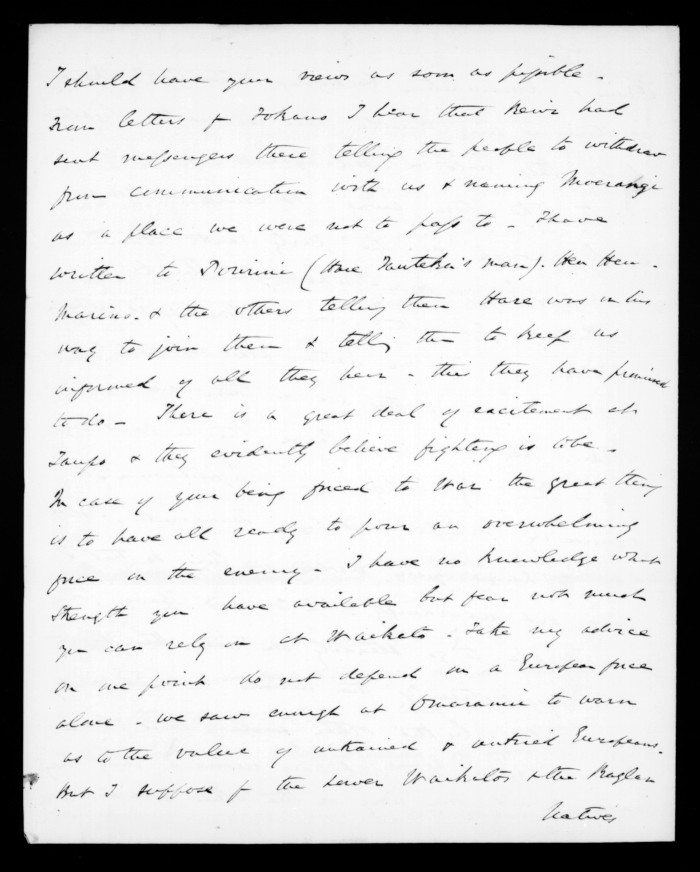 I should have your views as soon as possible -
From letters fr Tokano I hear that Rewi had
sent messengers there telling the people to withdraw
from communication with us & naming Moerangi
as a place we were not to pass to - I have
written to (Hare Tauteka's man). Heu Heu -
& the others telling them Hare was on his
way to join them & tellig them to keep us
informed of all they hear - this they have promised
to do - There is a great deal of excitement at
Taupo & they evidently believe fighting is to be -
In case of your being forced to war the great thing
is to have all ready to pour an overwhelming
force on the enemy - I have no knowledge what
strength you have available but fear not much
you can rely on at Waikato - Take my advice
on one point do not depend on a European force
alone - we saw enough at Omaranui to warn
as to the value of untrained & untried Europeans.
But I suppose fr the Lower Waikatos & the Raglan
Natives